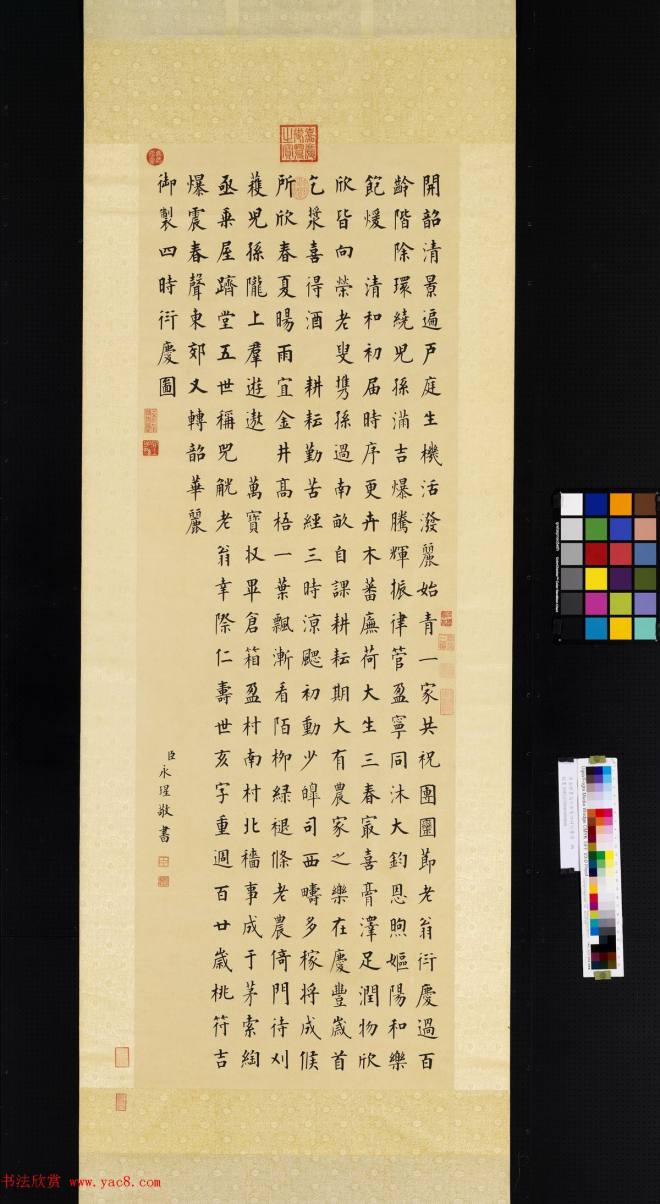 開韶清景遍戶庭生機活潑麗始青一家共祝團圞節老翁衎慶過百
齡階除環繞兒孫滿吉爆騰輝振律管盈寧同沐大鈞恩煦嫗陽和樂
飽煖 清和初屆時序更卉木蕃廡荷大生三春最喜膏澤足潤物欣
欣皆向榮老叟攜孫過南畝自課耕耘期大有農家之樂在慶豐歲首
乞漿喜得酒 耕耘勤苦經三時涼颸初動少皞司西疇多稼將成候
所欣春夏暘雨宜金井高梧一葉飄漸看陌柳綠褪條老農倚門待刈
穫兒孫隴上羣遊遨 萬寶收畢倉箱盈村南村北穡事成于茅索綯
亟乘屋躋堂五世稱兕觥老翁幸際仁壽世亥字重週百廿歲桃符吉
爆震春聲東郊又轉韶華麗
御製四時衎慶圖
臣永瑆敬書
书法欣赏 www.yac8.com